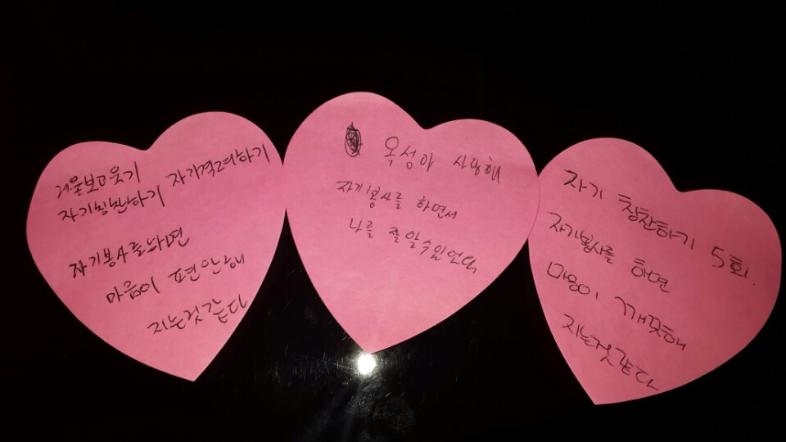 거울보고웃기
자기칭찬하기 자기격려하기
자기봉사를하면
마음이 편안해
지는것같다
옥성아 사랑해
자기봉사를 하면서
나를 잘 알수있었다.
자기 칭찬하기 5회.
자기봉사를 하면
마음이 깨끗해
지는것같다